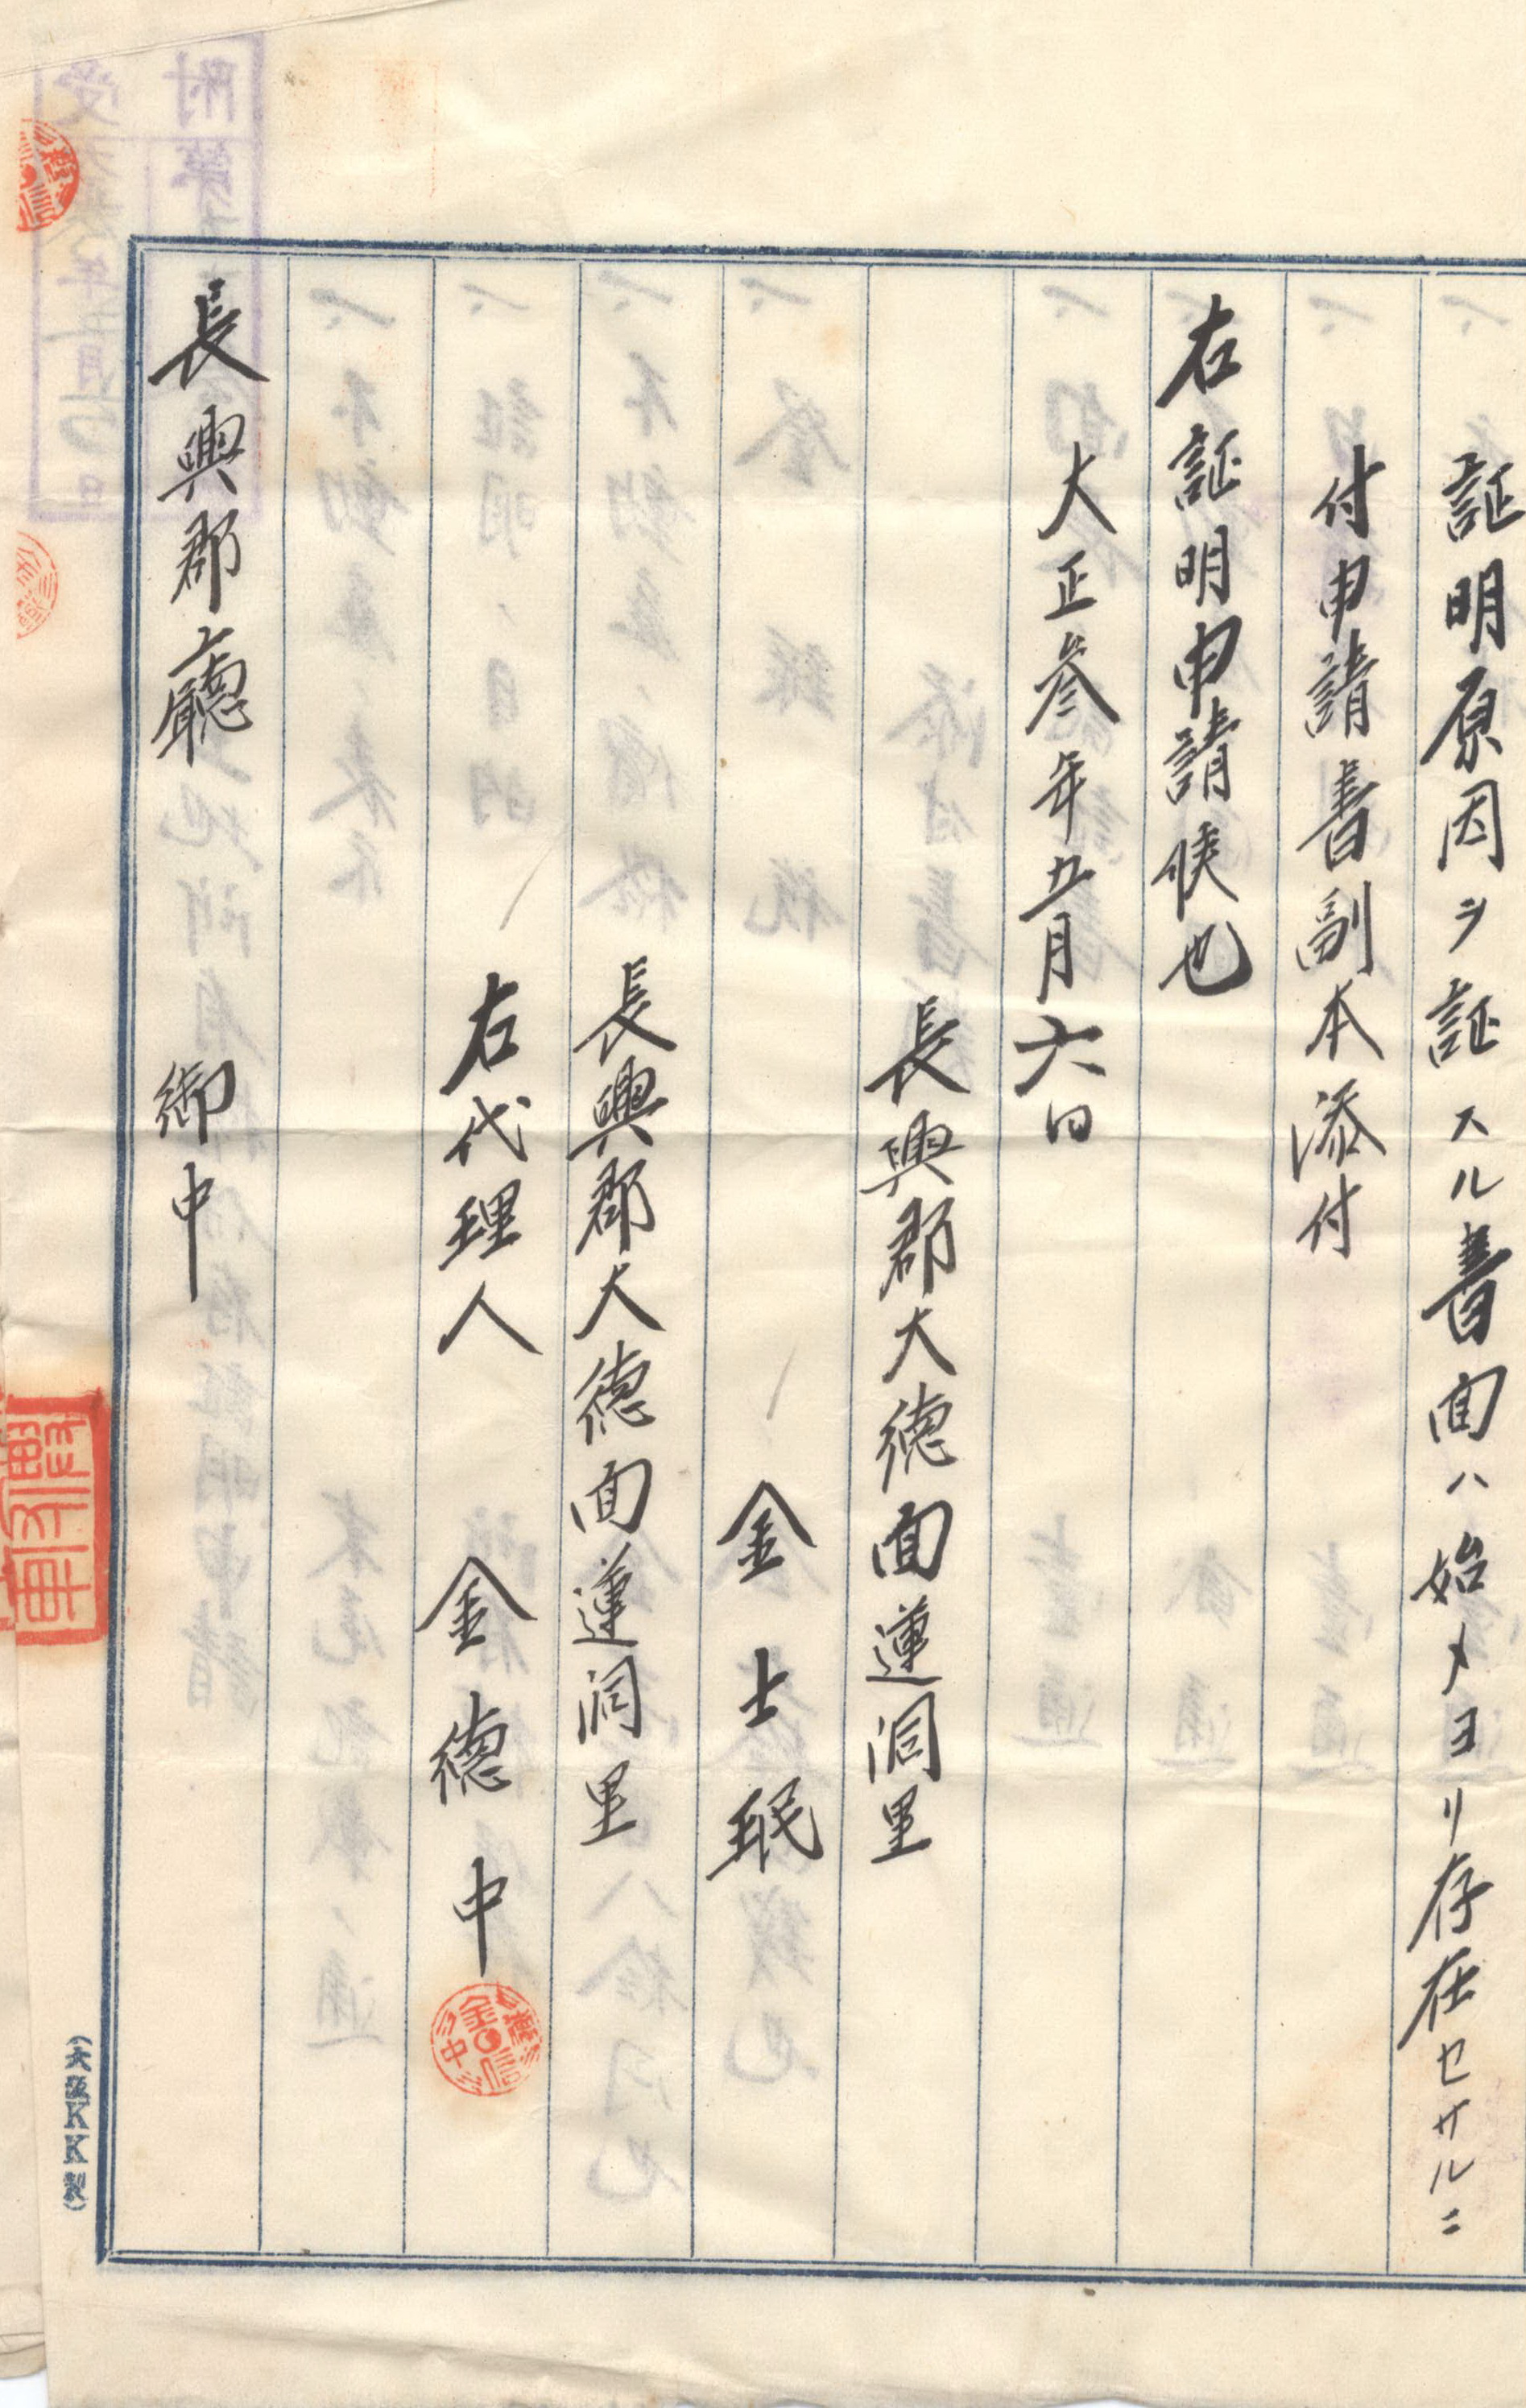 証明原因ヲ証スル書面ハ始メヨリ存在セサルニ
付申請書副本添付
右証明申請候也
大正参年五月六日
長興郡大德面蓮洞里
金士珉
長興郡大德面蓮洞里
右代理人 金德中
長興郡廳 御中
(大阪KK製)